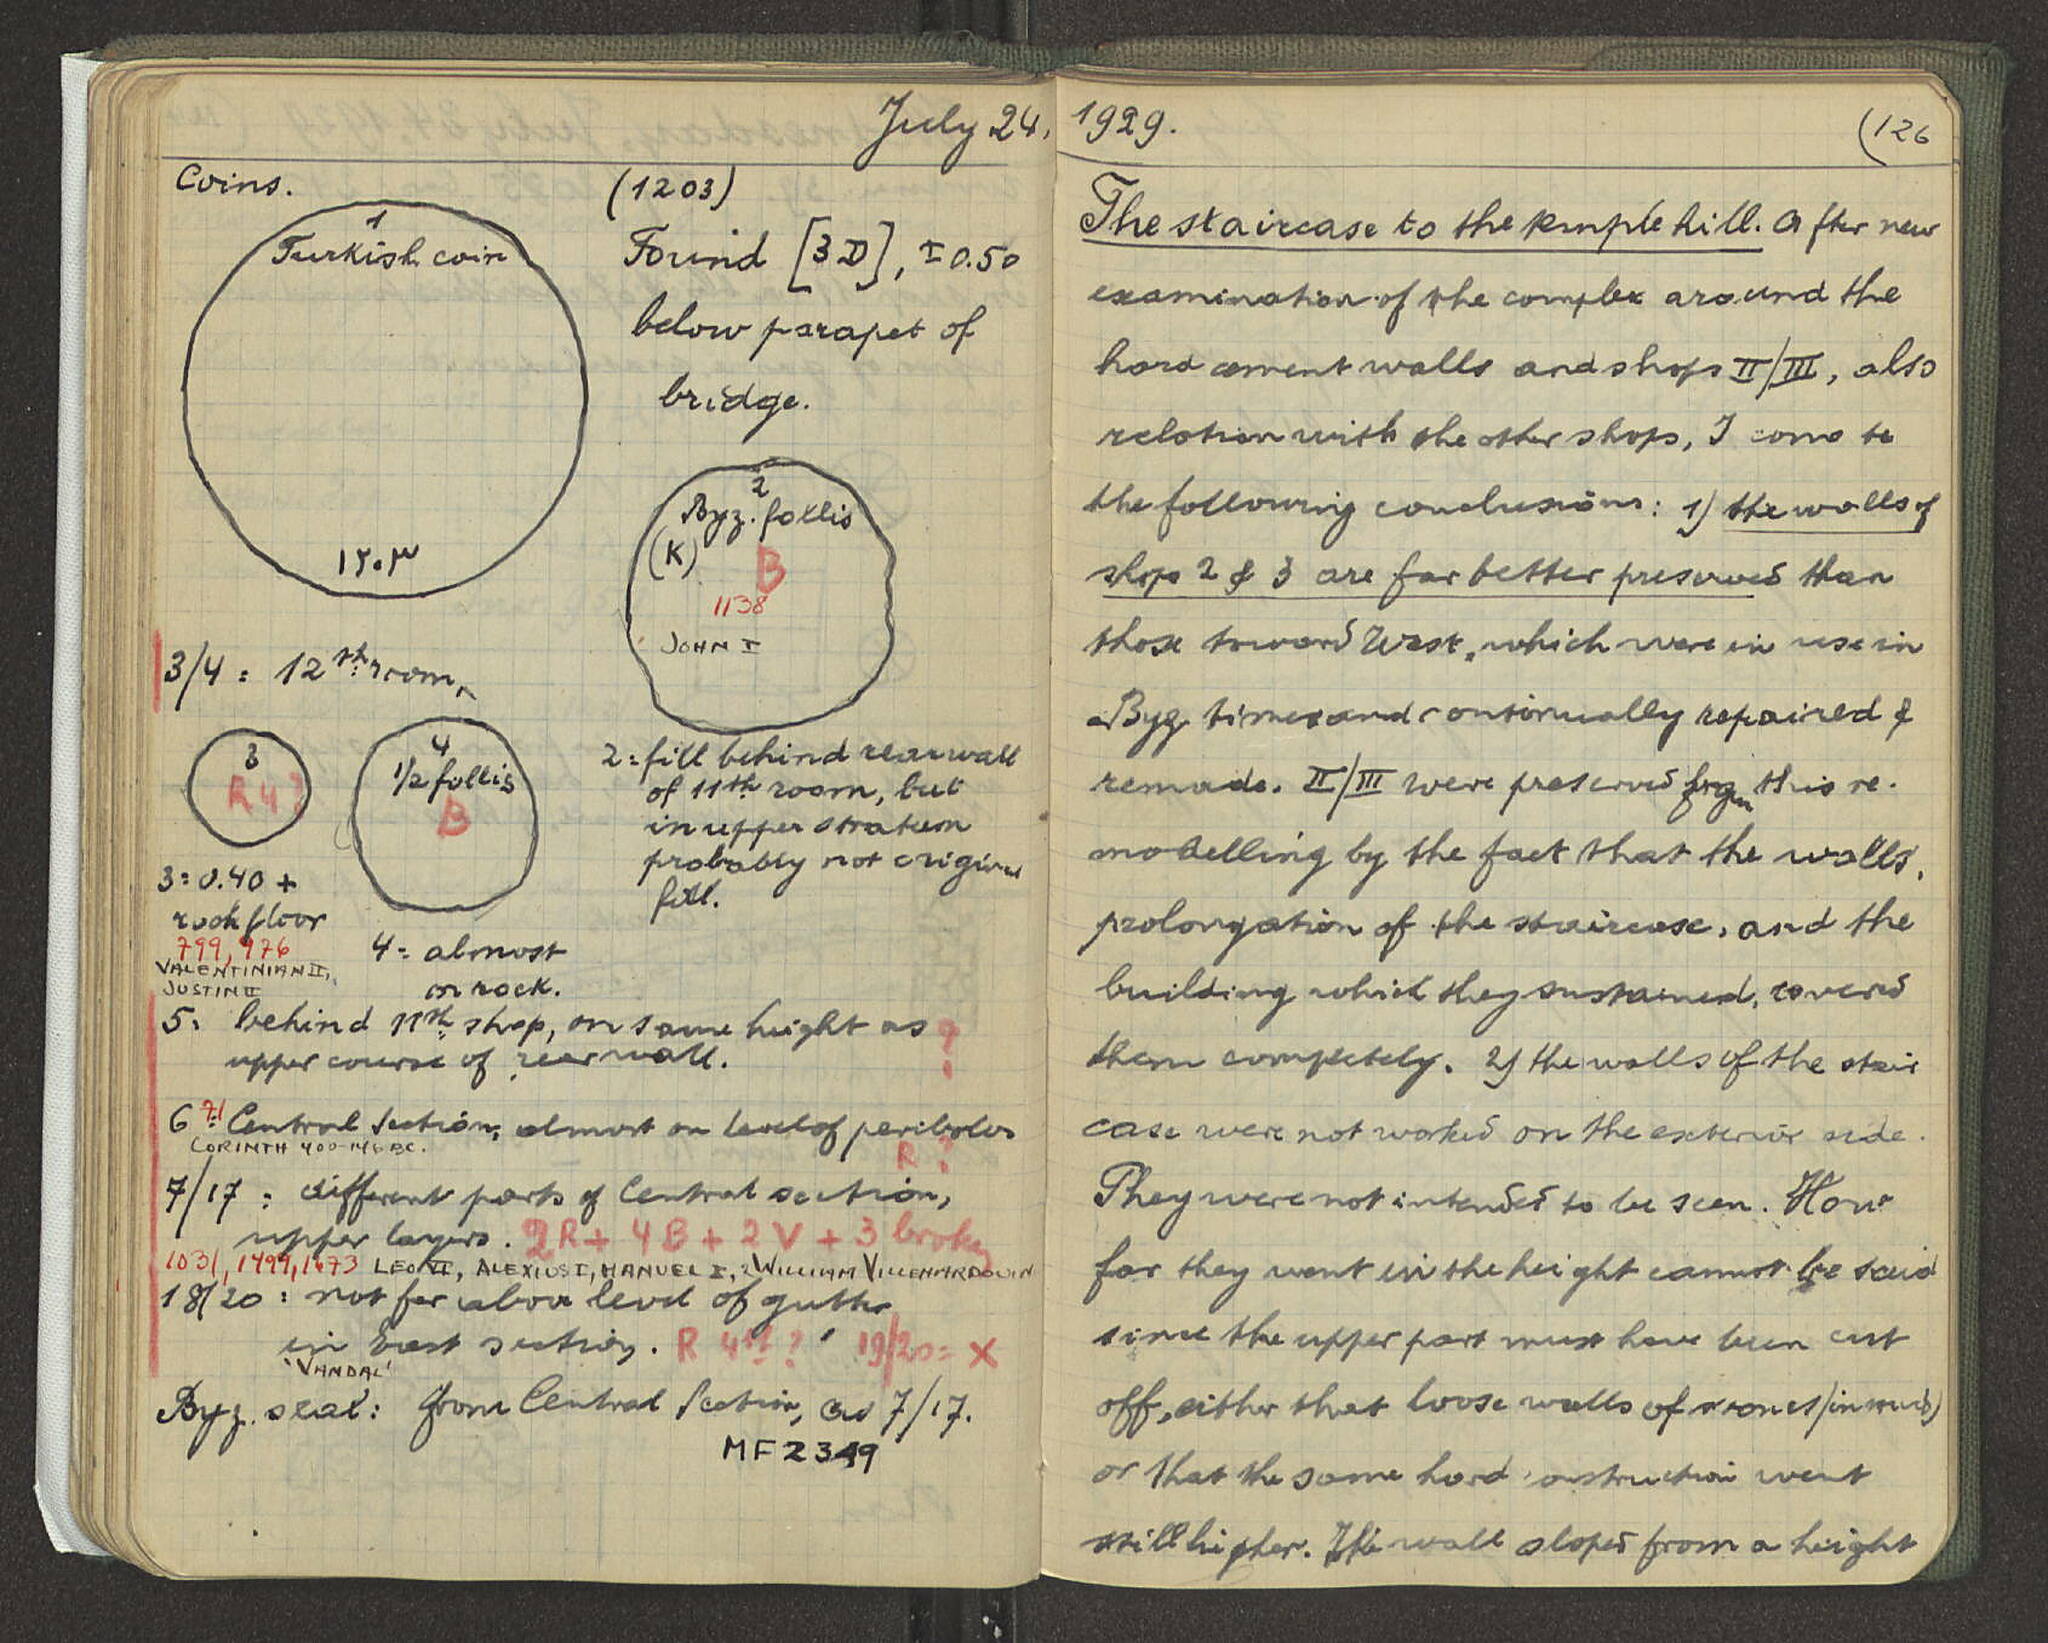 July 24, 1929.
(126
Coins.
1
Turkish coin
١٢٠٣
(1203)
Found [3D], ± 0.50
below parapet of
bridge.
2
Byz. follis
(K)
B
1138
JOHN I
3/4 = 12th room.
3
R 4?
4
1/2 follis
B
2 = fill behind rear wall
of 11th room, but
in upper stratum
probably not original
fill.
3 = 0.40 +
rock floor
799, 976
VALENTINIAN II,
JUSTIN II
4 = almost
on rock.
5 = behind 11th shop, on same height as
upper course of rear wall.
?
6 = Central Section, almost on level of peribolos
CORINTH 400-146 BC.
R ?
7/17 = different parts of Central section,
upper layers. 2R + 4B + 2V + 3 broken
1031, 1499, 1673 LEO VI, ALEXIUS I, MANUEL I, 2 WILLIAM VILLEHARDOUIN
18/20 = not far above level of gutter
in East section. R 4th? 19/20 = X
'VANDAL'
Byz. seal: from Central Section, as 7/17.
MF 2349
The staircase to the temple hill. After new
examination of the complex around the
hard cement walls and shops II/III, also
relation with the other shops, I come to
the following conclusions: 1) the walls of
shops 2 & 3 are far better preserved than
those toward West, which were in use in
Byz. times and continually repaired &
remade. II/III were preserved from this re-
modelling by the fact that the walls,
prolongation of the staircase, and the
building which they sustained, covered
them completely. 2) the walls of the stair
case were not worked on the exterior side.
They were not intended to be seen. How
far they went in the height cannot be said
since the upper part must have been cut
off, either that loose walls of stones (in mud)
or that the same hard construction went
still higher. The wall sloped from a height